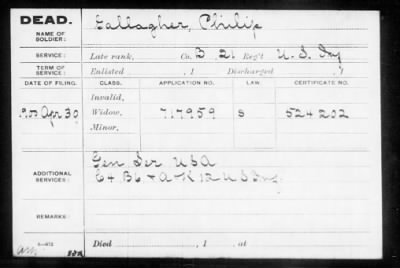 DEAD.
NAME OF SOLDIER:
Gallagher, Philip
SERVICE:
Late rank, Co. B, 21 Reg't U. S. Inf
TERM OF SERVICE:
Enlisted , 1 Discharged , 1
DATE OF FILING. CLASS. APPLICATION NO. LAW. CERTIFICATE NO.
Invalid,
Apr 30 Widow, 717959 S 524202
Minor,
ADDITIONAL SERVICES:
Gen Ser USA
& A K 12 U S Inf
REMARKS:
Died , 1 , at